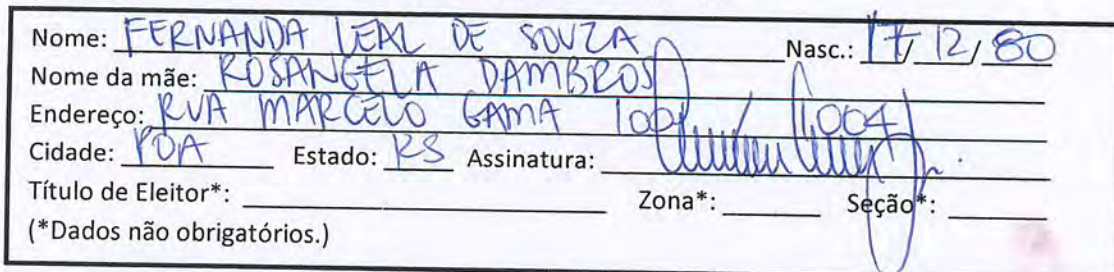 Nome: FERNANDA LEAL DE SOUZA Nasc.: 17/12/80
Nome da mãe: ROSANGELA DAMBROS
Endereço: RUA MARCELO GAMA 1004
Cidade: POA Estado: RS Assinatura:
Título de Eleitor*: Zona*: Seção*:
(*Dados não obrigatórios.)